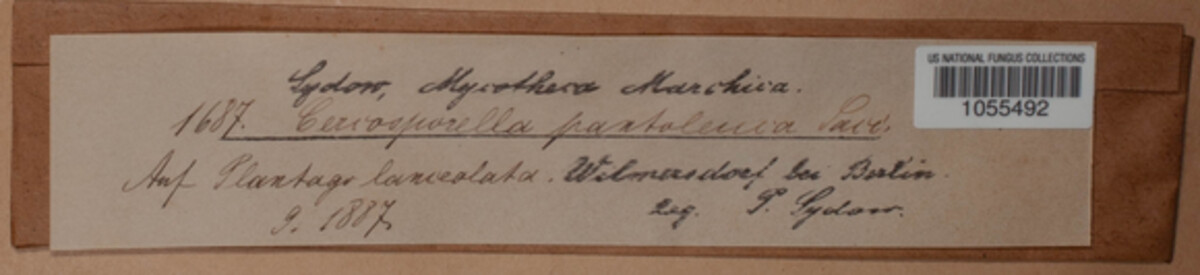 Sydow, Mycotheca Marchica.
1687. Cercosporella pantoleuca Sacc.
Auf Plantago lanceolata. Wilmersdorf bei Berlin.
9. 1887. leg. P. Sydow.
US NATIONAL FUNGUS COLLECTIONS
1055492